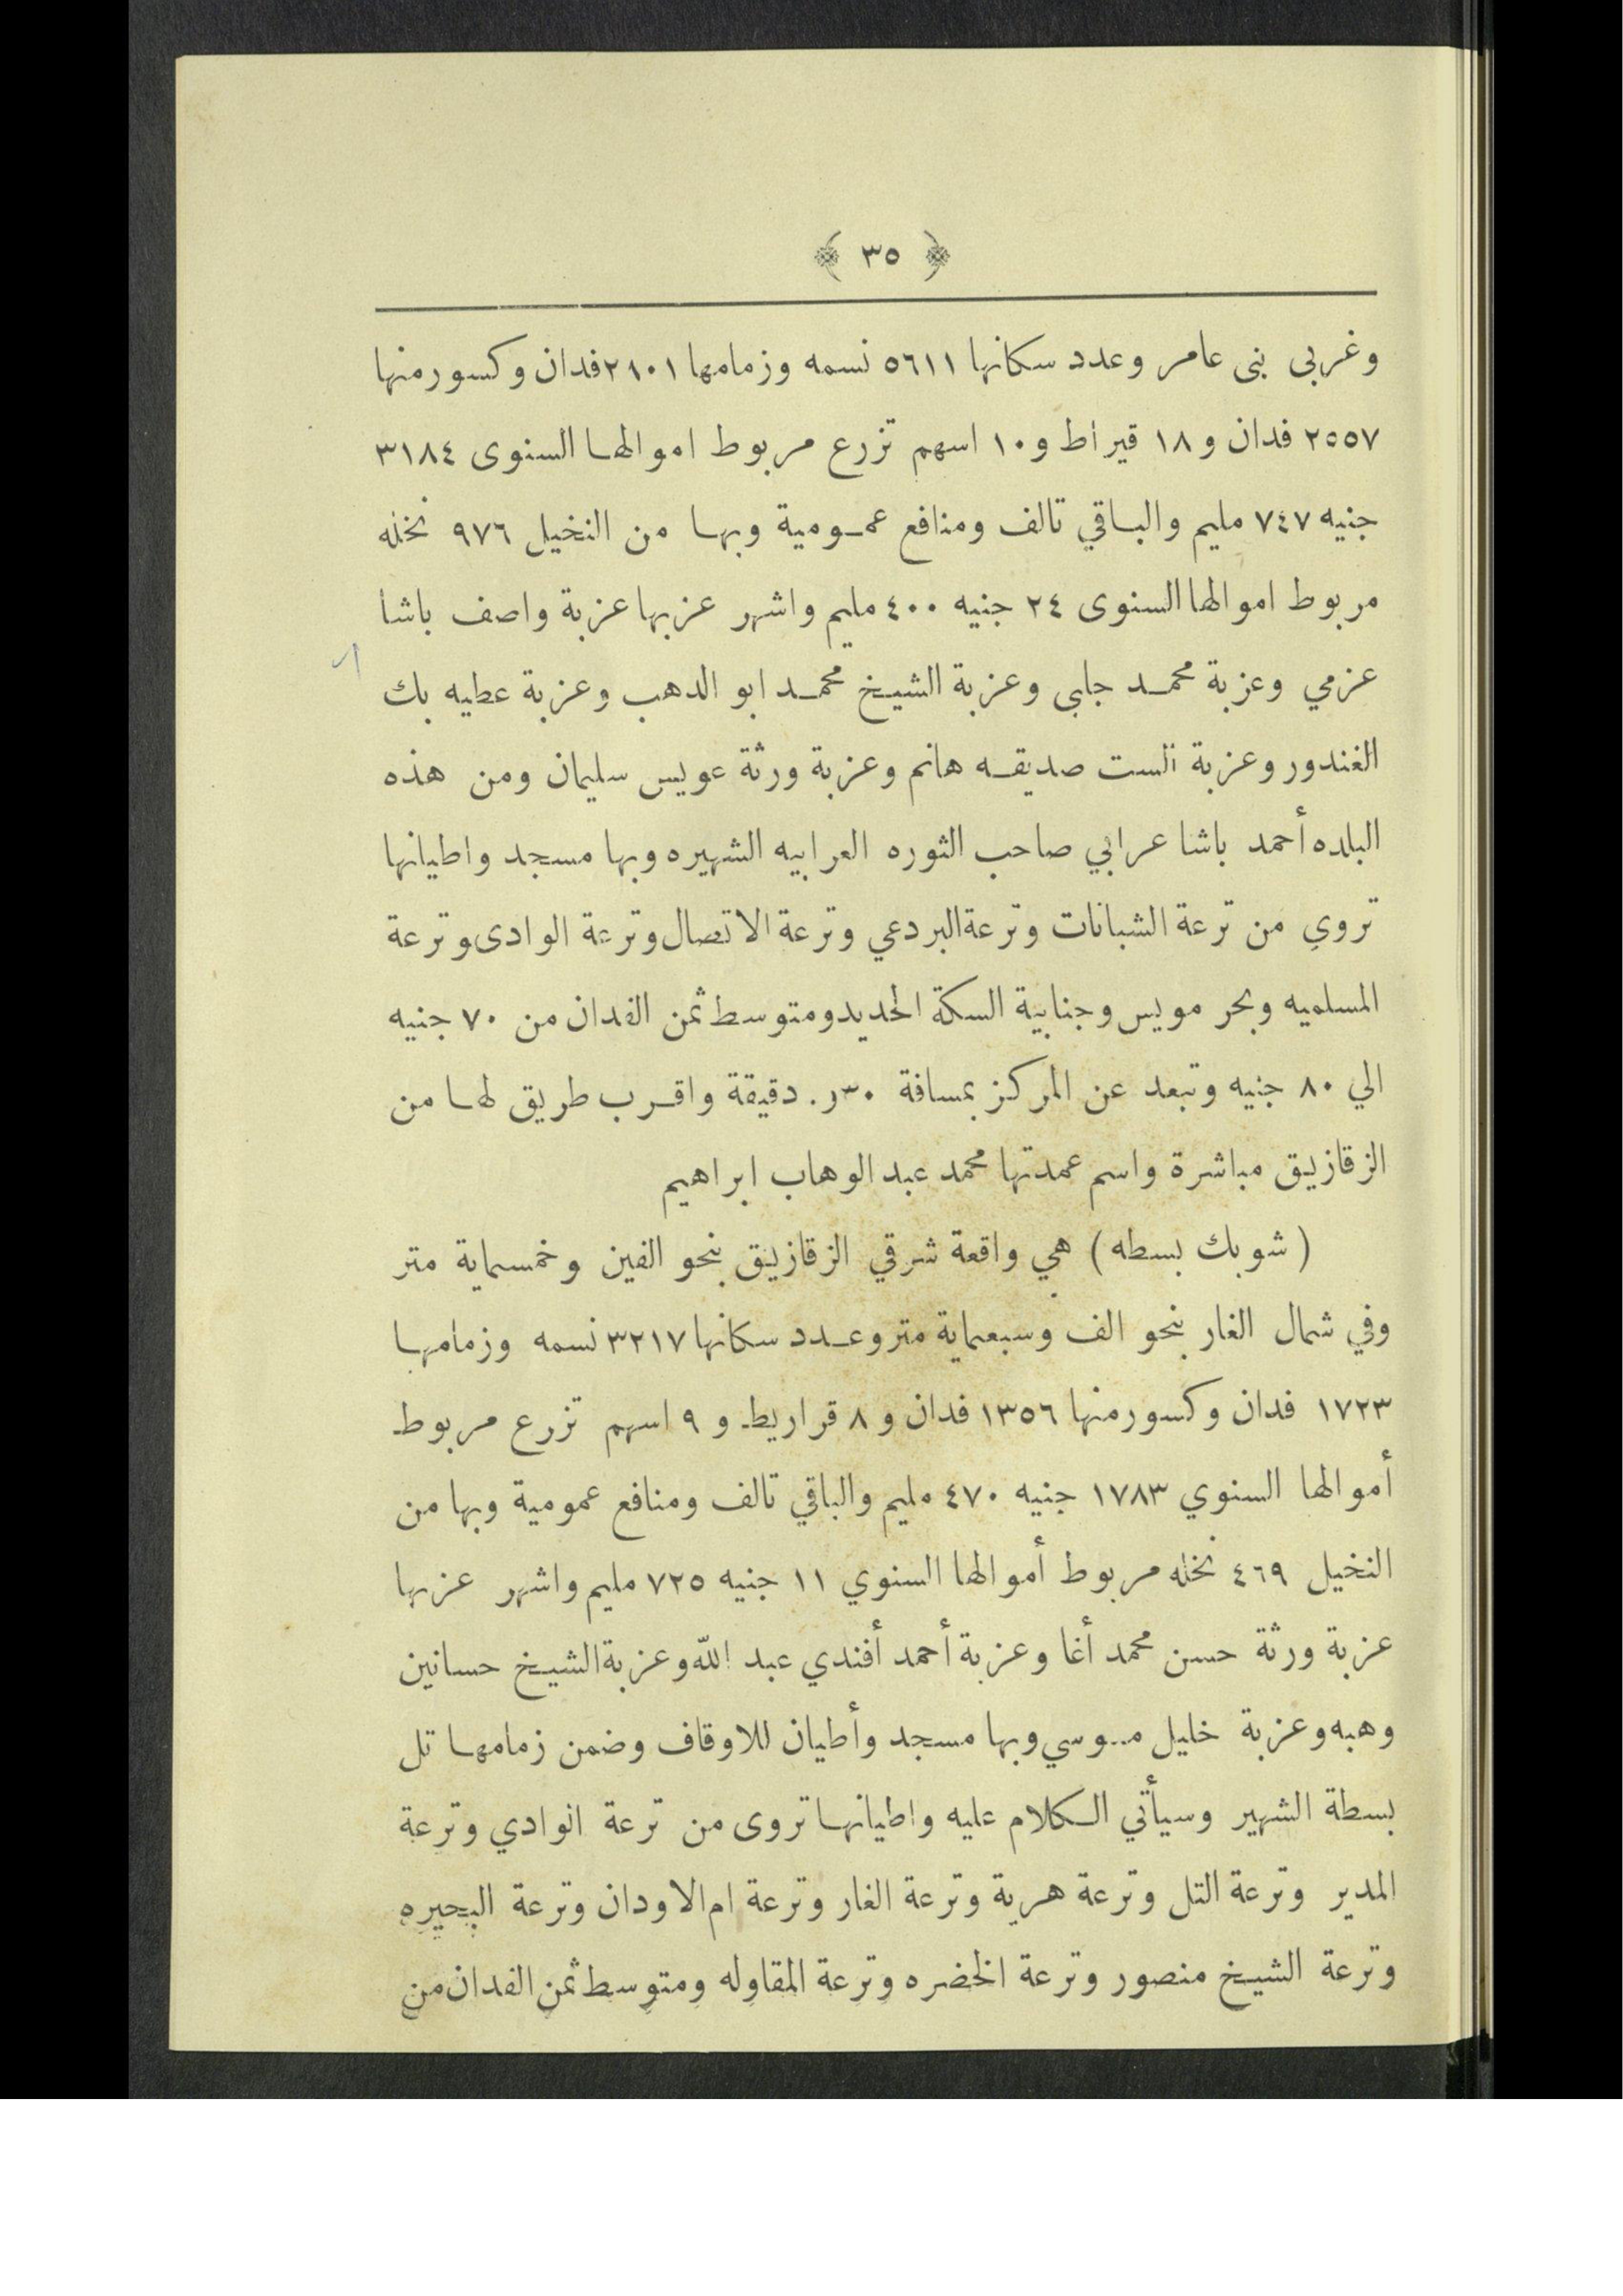 ﴿ ٣٥ ﴾
وغربى بنى عامر وعدد سكانها ٥٦١١ نسمه وزمامها ٢٨٠١ فدان وكسور منها
٢٥٥٧ فدان و ١٨ قيراط و ١٠ اسهم تزرع مربوط اموالها السنوى ٣١٨٤
جنيه ٧٤٧ مليم والباقي تالف ومنافع عمومية وبها من النخيل ٩٧٦ نخله
مربوط اموالها السنوى ٢٤ جنيه ٤٠٠ مليم واشهر عزبها عزبة واصف باشا
عزمي وعزبة محمد جلبى وعزبة الشيخ محمد ابو الدهب وعزبة عطيه بك
الغندور وعزبة الست صديقه هانم وعزبة ورثة عويس سليمان ومن هذه
البلده أحمد باشا عرابي صاحب الثوره العرابيه الشهيره وبها مسجد واطيانها
تروي من ترعة الشبانات وترعة البردعي وترعة الاتصال وترعة الوادى وترعة
المسلميه وبحر مويس وجنابية السكة الحديد ومتوسط ثمن الفدان من ٧٠ جنيه
الي ٨٠ جنيه وتبعد عن المركز بمسافة ٣٠ر. دقيقة واقرب طريق لها من
الزقازيق مباشرة واسم عمدتها محمد عبد الوهاب ابراهيم
( شوبك بسطه ) هي واقعة شرقي الزقازيق بنحو الفين وخمسماية متر
وفي شمال الغار بنحو الف وسبعماية متر وعدد سكانها ٣٢١٧ نسمه وزمامها
١٧٢٣ فدان وكسور منها ١٣٥٦ فدان و ٨ قراريط و ٩ اسهم تزرع مربوط
أموالها السنوي ١٧٨٣ جنيه ٤٧٠ مليم والباقي تالف ومنافع عمومية وبها من
النخيل ٤٦٩ نخله مربوط أموالها السنوي ١١ جنيه ٧٢٥ مليم واشهر عزبها
عزبة ورثة حسن محمد أغا وعزبة أحمد أفندي عبد الله وعزبة الشيخ حسانين
وهبه وعزبة خليل موسي وبها مسجد وأطيان للاوقاف وضمن زمامها تل
بسطة الشهير وسيأتي الكلام عليه واطيانها تروى من ترعة الوادي وترعة
المدير وترعة التل وترعة هرية وترعة الغار وترعة ام الاودان وترعة البحيره
وترعة الشيخ منصور وترعة الخضره وترعة المقاوله ومتوسط ثمن الفدان من